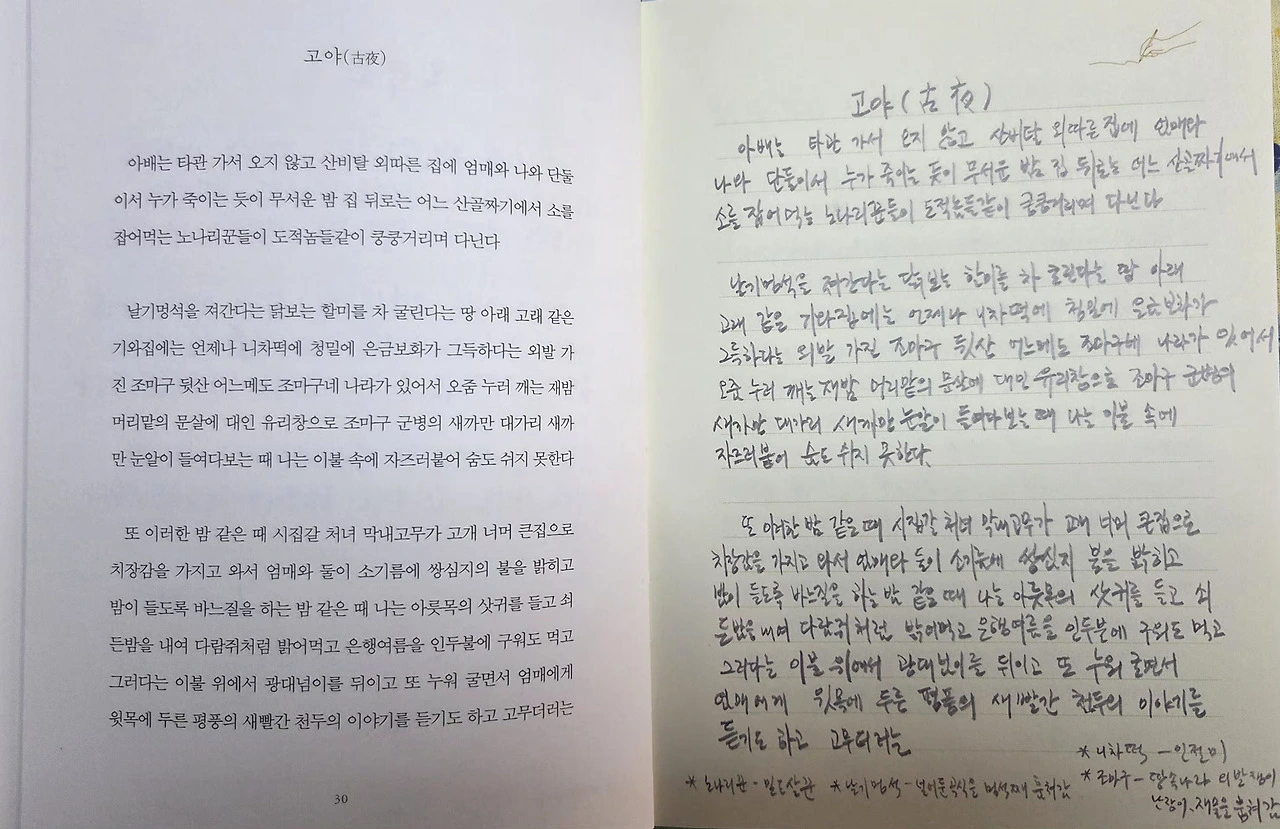 고야(古夜)
아배는 타관 가서 오지 않고 산비탈 외따른 집에 엄매와 나와 단둘
이서 누가 죽이는 듯이 무서운 밤 집 뒤로는 어느 산골짜기에서 소를
잡어먹는 노나리꾼들이 도적놈들같이 쿵쿵거리며 다닌다
날기멍석을 져간다는 닭보는 할미를 차 굴린다는 땅 아래 고래 같은
기와집에는 언제나 니차떡에 청밀에 은금보화가 그득하다는 외발 가
진 조마구 뒷산 어느메도 조마구네 나라가 있어서 오줌 누러 깨는 재밤
머리맡의 문살에 대인 유리창으로 조마구 군병의 새까만 대가리 새까
만 눈알이 들여다보는 때 나는 이불 속에 자즈러붙어 숨도 쉬지 못한다
또 이러한 밤 같은 때 시집갈 처녀 막내고무가 고개 너머 큰집으로
치장감을 가지고 와서 엄매와 둘이 소기름에 쌍심지의 불을 밝히고
밤이 들도록 바느질을 하는 밤 같은 때 나는 아릇목의 삿귀를 들고 쇠
든밤을 내여 다람쥐처럼 밝어먹고 은행여름을 인두불에 구워도 먹고
그러다는 이불 위에서 광대넘이를 뒤이고 또 누워 굴면서 엄매에게
윗목에 두른 평풍의 새빨간 천두의 이야기를 듣기도 하고 고무더러는
30
고야(古夜)
아배는 타관 가서 오지 않고 산비탈 외따른 집에 엄매와
나와 단둘이서 누가 죽이는 듯이 무서운 밤 집 뒤로는 어느 산골짜기에서
소를 잡어먹는 노나리꾼들이 도적놈들같이 쿵쿵거리며 다닌다
날기멍석을 져간다는 닭보는 할미를 차 굴린다는 땅 아래
고래 같은 기와집에는 언제나 니차떡에 청밀에 은금보화가
그득하다는 외발 가진 조마구 뒷산 어느메도 조마구네 나라가 있어서
오줌 누러 깨는 재밤 머리맡의 문살에 대인 유리창으로 조마구 군병의
새까만 대가리 새까만 눈알이 들여다보는 때 나는 이불 속에
자즈러붙어 숨도 쉬지 못한다.
또 이러한 밤 같은 때 시집갈 처녀 막내고무가 고개 너머 큰집으로
치장감을 가지고 와서 엄매와 둘이 소기름에 쌍심지 불을 밝히고
밤이 들도록 바느질을 하는 밤 같은 때 나는 아릇목의 삿귀를 들고 쇠
든밤을 내여 다람쥐처럼 밝어먹고 은행여름을 인두불에 구워도 먹고
그러다는 이불 위에서 광대넘이를 뒤이고 또 누워 굴면서
엄매에게 윗목에 두른 평풍의 새빨간 천두의 이야기를
듣기도 하고 고무더러는
* 니차떡 - 인절미
* 노나리꾼 - 밀도살꾼 * 날기멍석 - 널어둔곡식을 멍석째 훔쳐감
* 조마구 - 땅속나라 외발쟁이
난장이, 재물을 훔쳐감